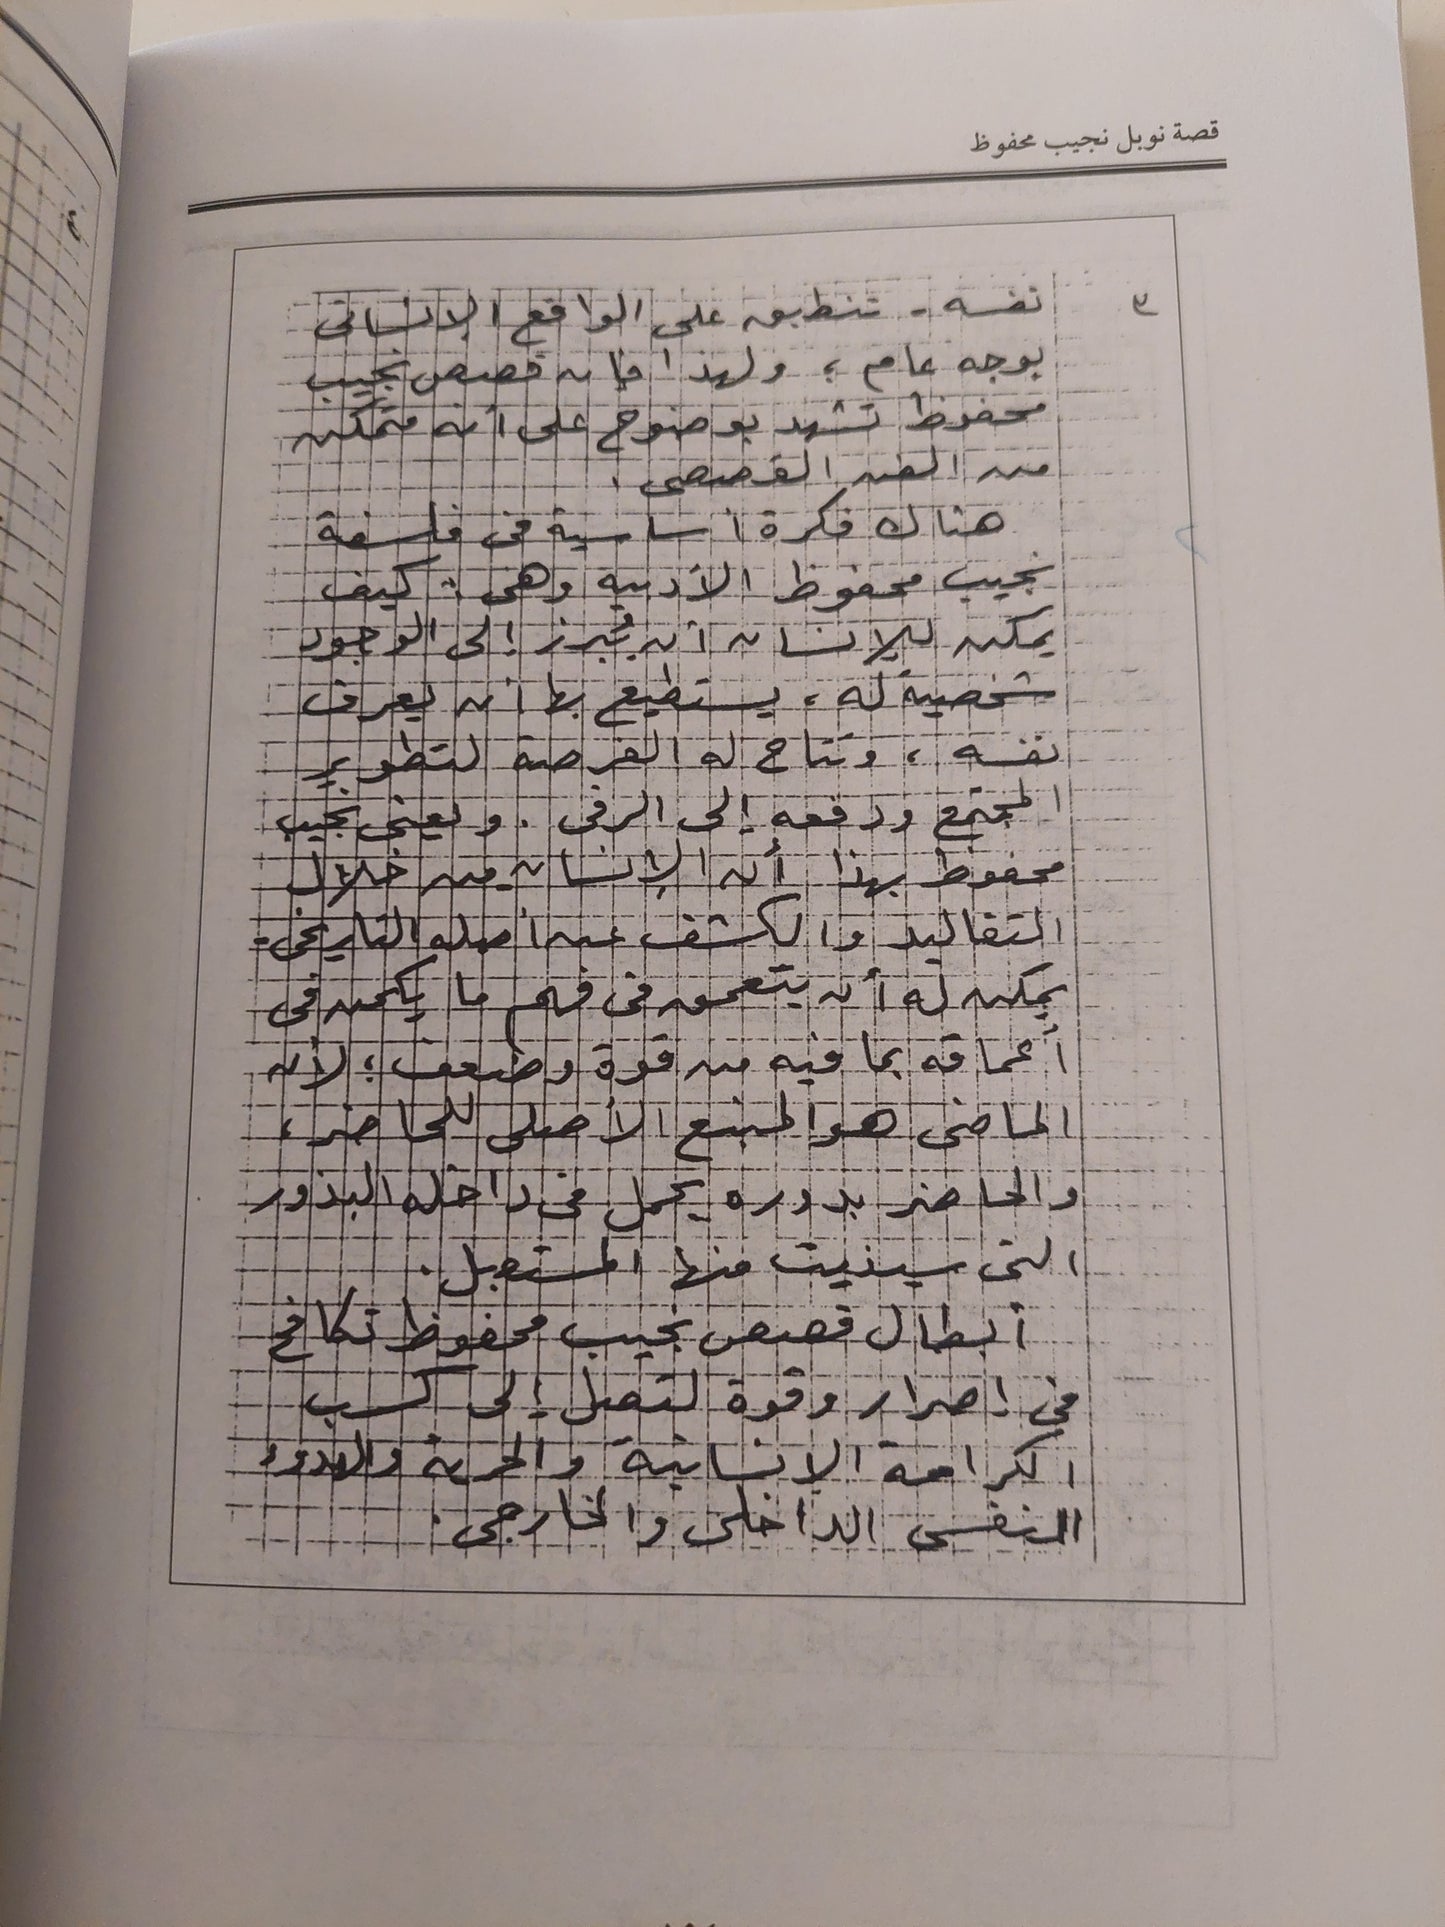 قصة نوبل نجيب محفوظ
٣
نفسه - تنطبق على الواقع الإنسانى
بوجه عام ؛ ولهذا فإن قصص نجيب
محفوظ تشهد بوضوح على أنه متمكن
من الفن القصصى .
هناك فكرة أساسية فى فلسفة
نجيب محفوظ الأدبية وهى : كيف
يمكن للإنسان أن يبرز إلى الوجود
شخصية له ، يستطيع بها أن يعرف
نفسه ، وتتاح له الفرصة لتطوير
المجتمع ودفعه إلى الرقى . ويعنى نجيب
محفوظ بهذا أن الإنسان من خلال
التقاليد والكشف عن أصله التاريخى -
يمكن له أن يتعمق فى فهم ما يكمن فى
أعماقه بما فيه من قوة وضعف ؛ لأن
الماضى هو المنبع الأصلى للحاضر ،
والحاضر بدوره يحمل فى داخله البذور
التى سينبت منها المستقبل .
أبطال قصص نجيب محفوظ تكافح
فى إصرار وقوة لتصل إلى كسب
الكرامة الإنسانية والحرية والهدوء
النفسى الداخلى والخارجى .
٤